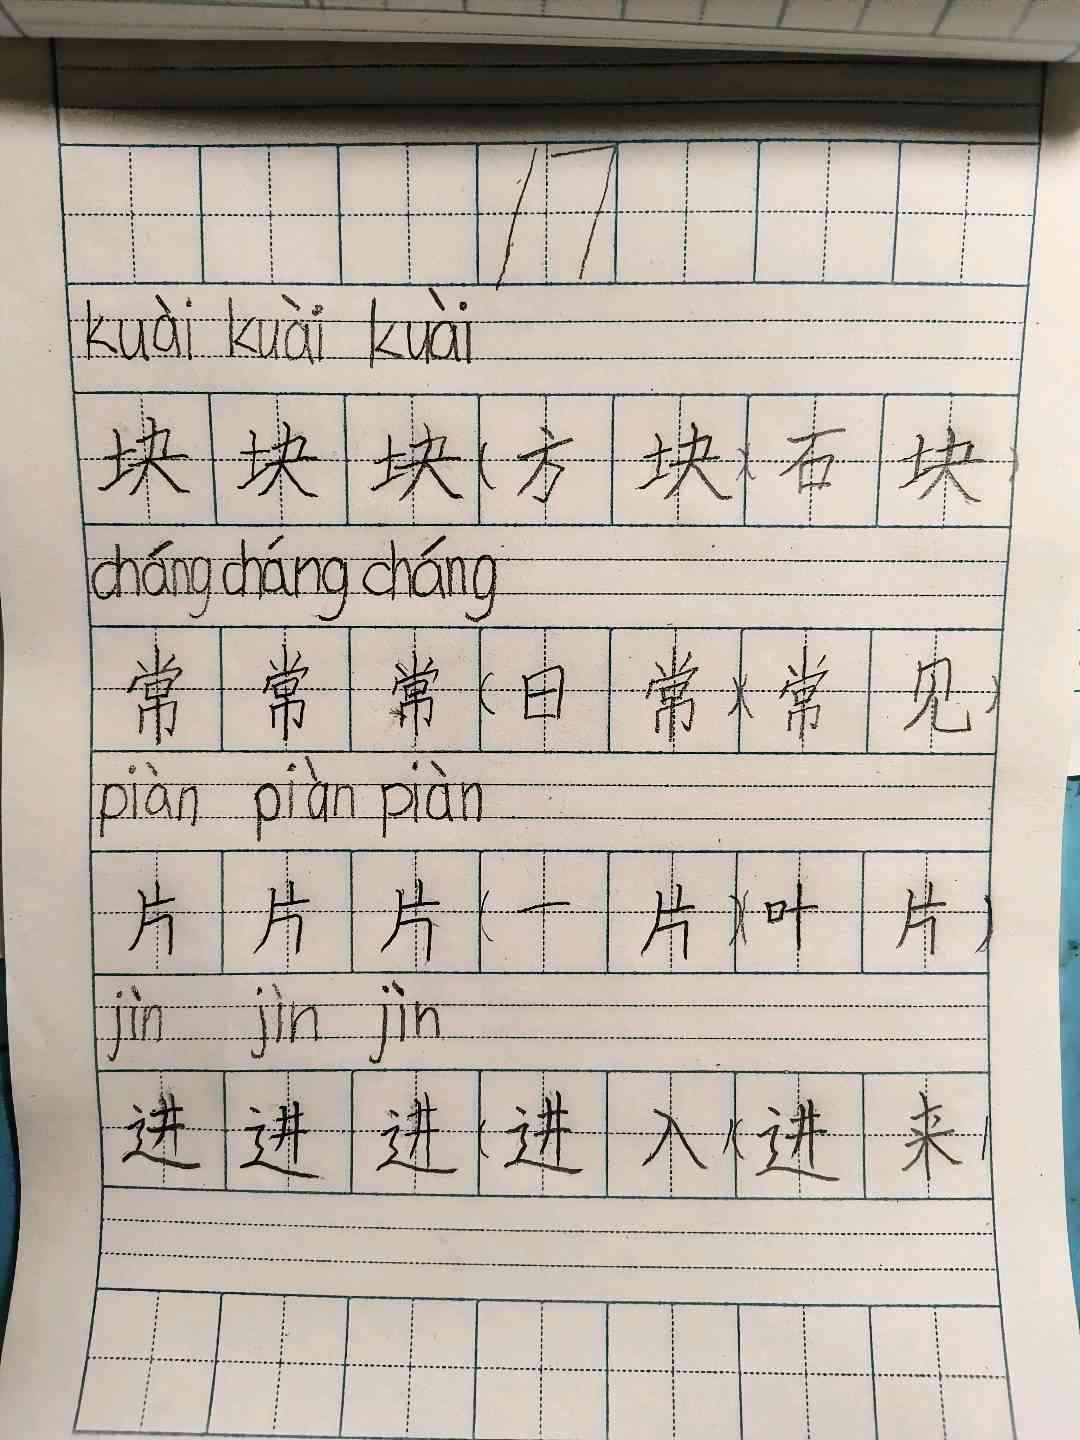 17
kuài kuài kuài
块 块 块 (方 块) 石 块)
cháng cháng cháng
常 常 常 (日 常) (常 见)
piàn piàn piàn
片 片 片 (一 片) (叶 片)
jìn jìn jìn
进 进 进 (进 入) (进 来)